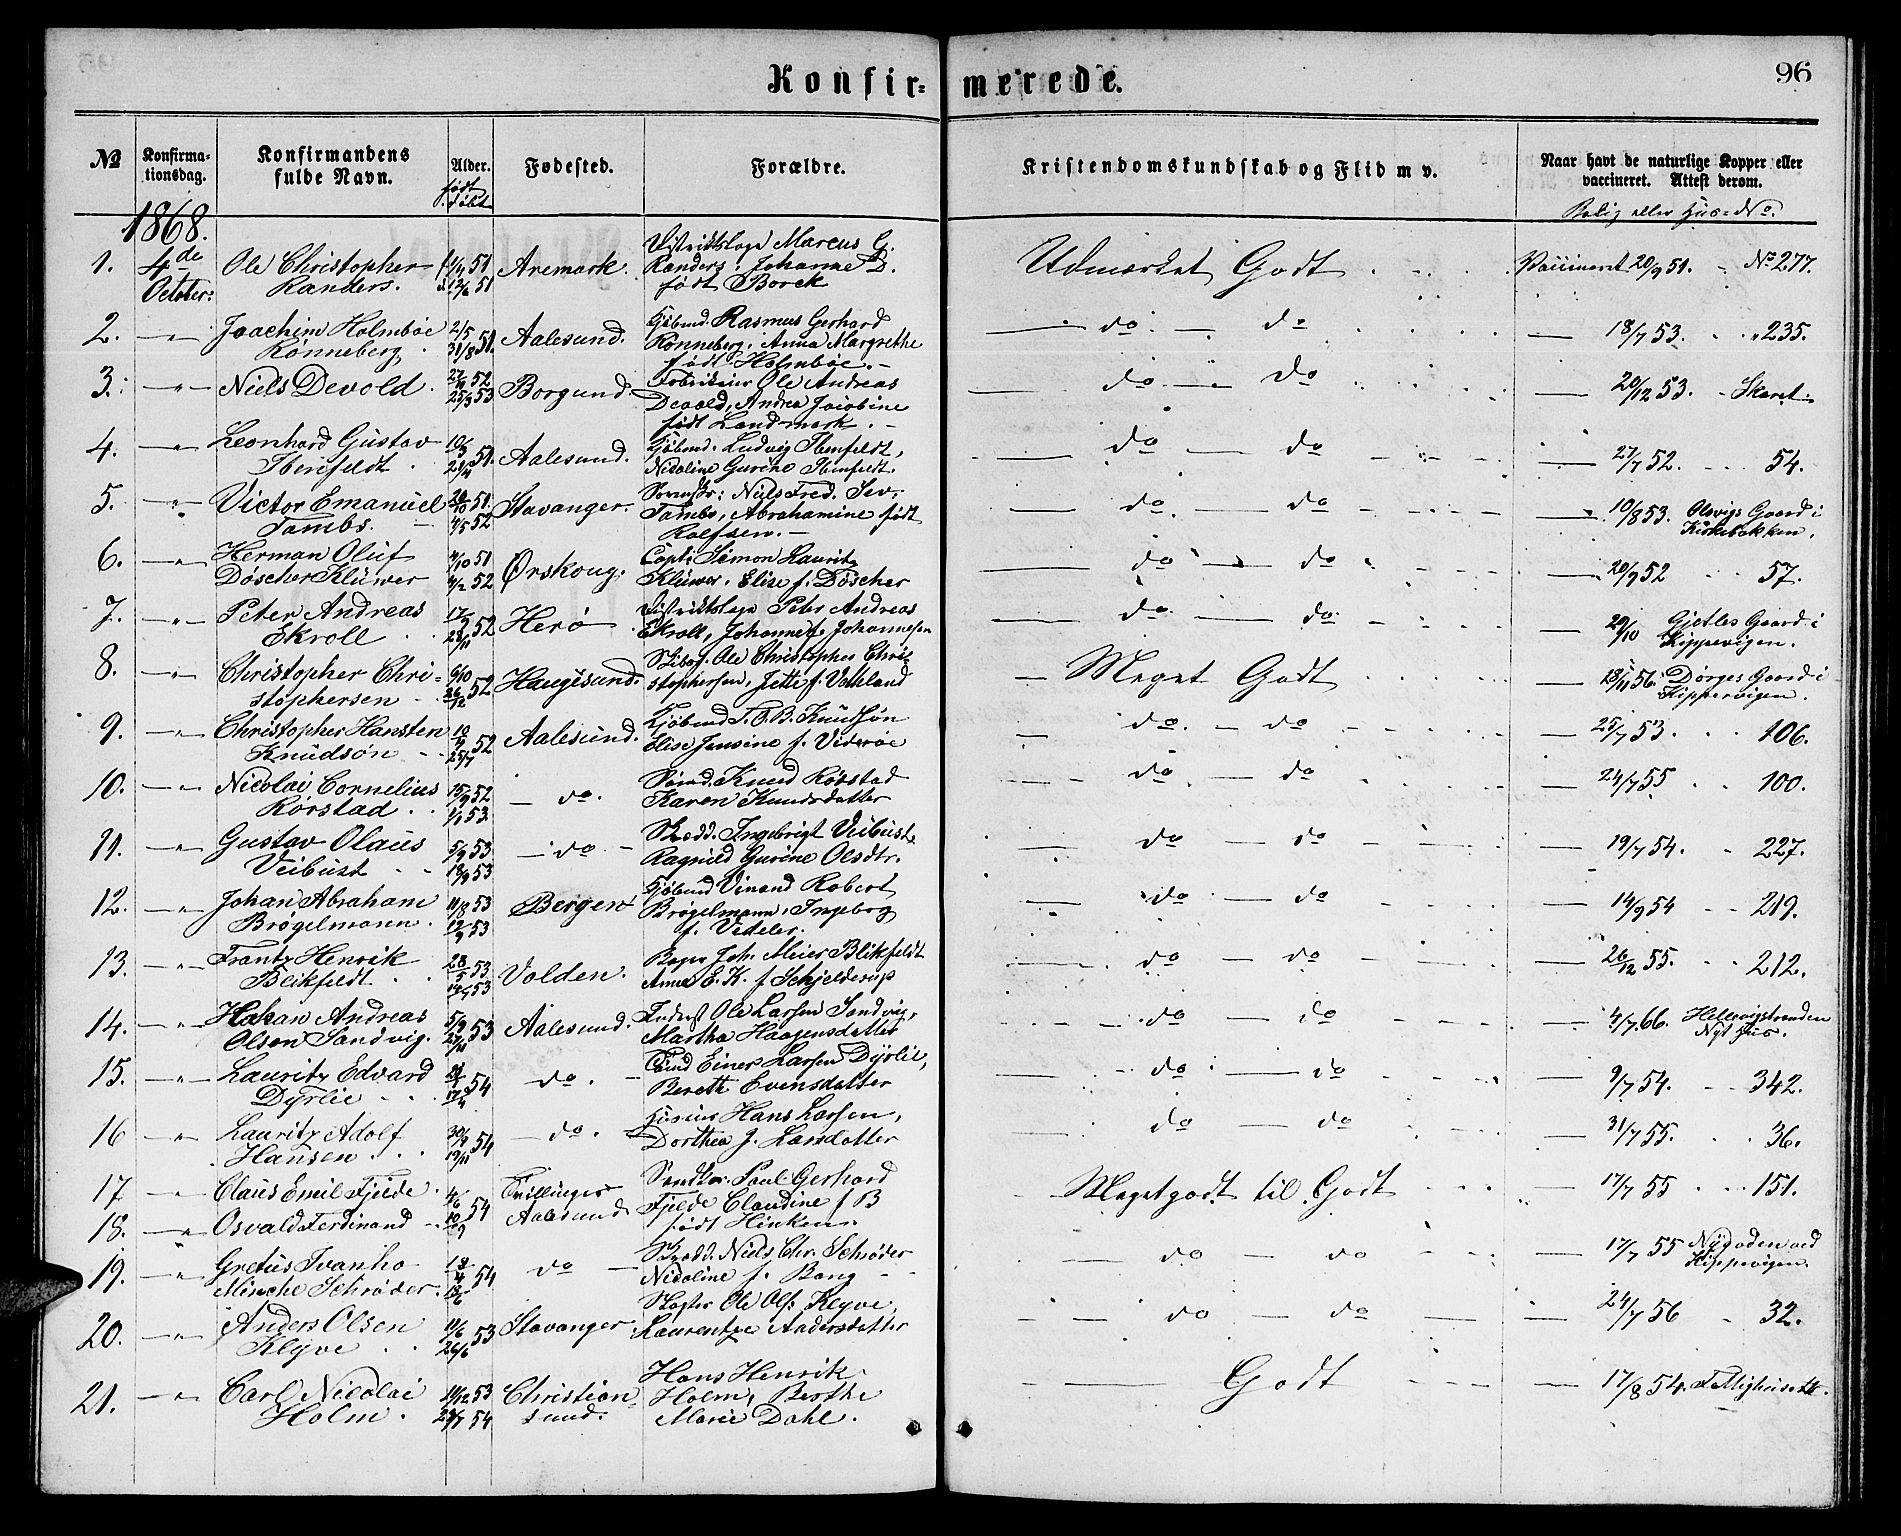 Konfirmerede.
96
№ Konfirmationsdag. Konfirmandens fulde Navn. Alder. født døbt Fødested. Forældre. Kristendomskundskab og Flid m v. Naar havt de naturlige Kopper eller vaccineret. Attest derom.
Bolig eller Hus-No.
1868.
1. 4de October: Ole Christopher Randers. 51 51 Aremark. Distriktslæge Marcus G. Randers, Johanne D. født Borck Udmærket Godt Vaccineret 20/9 51. No 277.
2. —"— Joachim Holmboe Rønneberg 2/5 31/8 51. Aalesund. Kjøbmd. Rasmus Gerhard Rønneberg, Anna Margrethe født Holmboe. do — do — 18/7 53. " 235.
3. —"— Niels Devold. 52 25/3 53 Borgund. Fabrikeier Ole Andreas Devold, Andrea Jacobine født Landmark. do — do — 20/12 53. Skaret.
4. —"— Leonhard Gustav Ibenfeldt 51. Aalesund. Kjøbmd. Ludvig Ibenfeldt, Nicoline Gurine Ibenfeldt. do — do — 27/7 52. 54.
5. —"— Victor Emanuel Tambs. 51 4/5 52 Stavanger. Niels Fred. Sev. Tambs, Abrahamine født Rolfsen. do — do — 10/8 53. Olsvigs Gaard i Kirkebakken.
6. —"— Herman Oluf Döscher Klüwer 4/10 51 4/2 52 Ørskoug. Capt. Simon Lauritz Klüwer, Elise f. Döscher do — do — 20/9 52 57.
7. —"— Peter Andreas Ekroll 52 Herø Distriktslæge Peter Andreas Ekroll, Johanne f. Johannesen do — do — 29/10 Gjetles Gaard i Kippervigen.
8. —"— Christopher Christophersen 6/10 26/12 52 Haugesund. Ole Christopher Christophersen, Jette f. Valeland Meget Godt 18/11 56. Dørges Gaard i Kippervigen.
9. —"— Christopher Hansten Knudsøn 52 Aalesund. Kjøbmd T. O. B. Knudsøn Elise Jensine f. Viderøe do — do — 25/7 53. 106.
10. —"— Nicolai Cornelius Rørstad 15/9 52 1/1 53. — do. Knud Rørstad Karen Knudsdatter do — do — 24/7 55 100.
11. —"— Gustav Olaus Veibust 5/9 53 18/9 53 — do — Skrædd. Ingebrigt Veibust, Ragnild Gurine Olsdtr. do — do — 19/7 54. 227.
12. —"— Johan Abraham Brögelmann. 11/8 53 12/9 53 Bergen Kjøbmd Vinand Robert Brögelmann, Ingeborg f. Vedeler. do — do — 14/9 54 219.
13. —"— Frantz Henrik Blikfeldt 53 53 Volden. Joh. Meier Blikfeldt Anna E. K. f Schjelderup do — do — 26/12 55. 212.
14. —"— Hakan Andreas Olsen Sandvig. 5/9 27/11 53 Aalesund. Ole Larsen Sandvig, Martha Haagensdatter do — do — 4/7 66. Hellevigstranden Nyt Hus.
15. —"— Lauritz Edvard Dyrlie 54 do. — Einer Larsen Dyrlie, Bereth Evensdatter do — do — 9/7 54. 342.
16 —"— Lauritz Adolf Hansen 30/9 19/11 54 — do. — Hans Larsen, Dorthea J. Larsdatter do — do — 31/7 55. 36.
17 —"— Claus Emil Fjelde 4/6 10/9 54 Tvillinger Aalesund Paul Gerhard Fjelde Claudine f B født Hinken. Meget godt til Godt 17/7 55 151.
18. —"— Osvald Ferdinand
19. —"— Gretus Ivanho Minche Schrøder. 54 do — Skrædd. Niels Chr. Schrøder Nicoline f. Bang do — do — 17/7 55 Nygaden ved Kippervigen.
20. —"— Anders Olsen Klyve 11/6 26/6 53 Stavanger. Ole Ols. Klyve, Laurentze Andersdatter do — do — 24/7 56 32.
21. —"— Carl Nicolai Holm. 53 54 Christiansund. Hans Henrik Holm, Berthe Marie Dahl. Godt 17/8 54. Fattighuset.